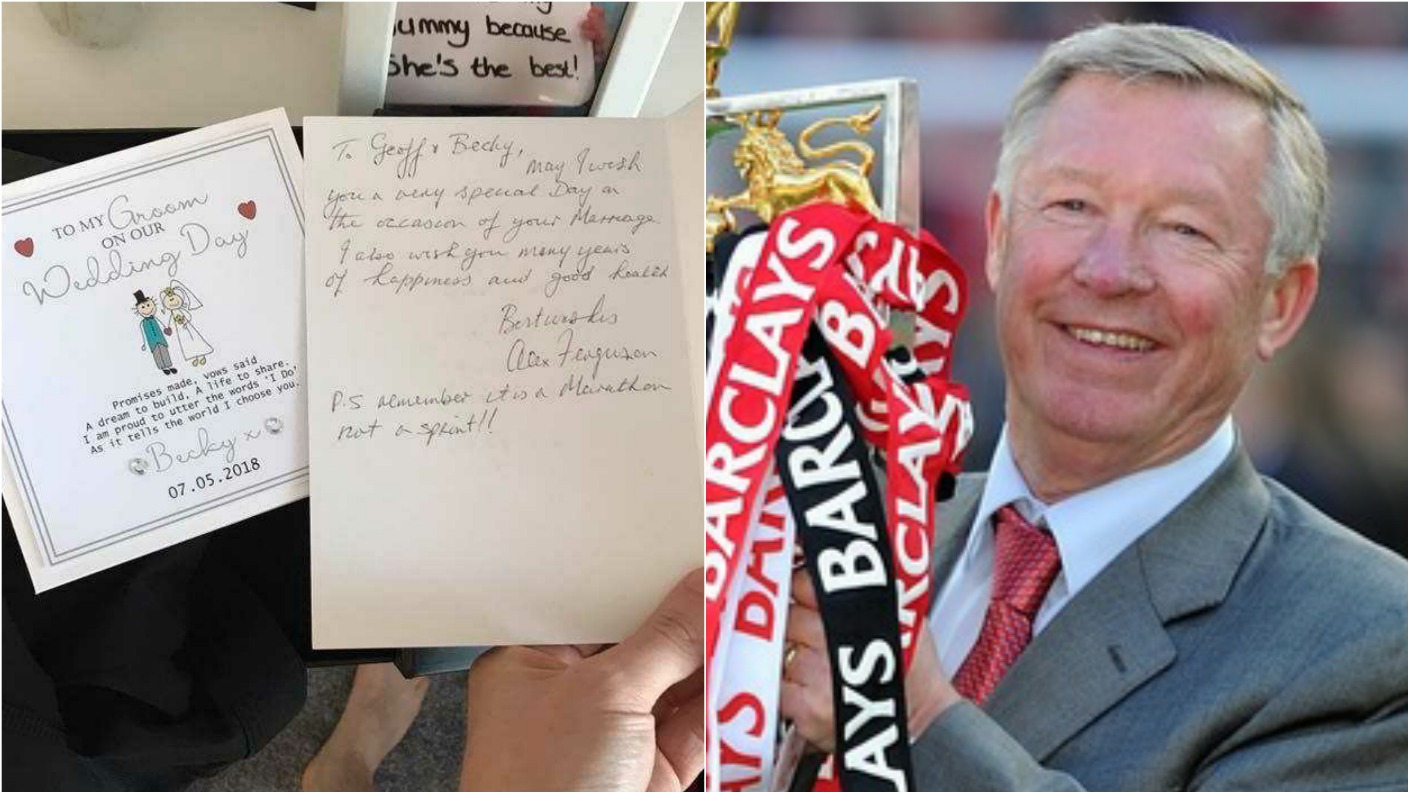 ummy because
She's the best!
TO MY Groom
ON OUR
Wedding Day
Promises made, vows said
A dream to build, A life to share.
I am proud to utter the words 'I Do'
As it tells the world I choose you.
Becky x
07.05.2018
To Geoff & Becky,
May I wish
you a very special Day on
the occasion of your Marriage
I also wish you many years
of happiness and good health
Best wishes
Alex Ferguson
P.S remember it is a Marathon
not a sprint!!
BARCLAYS
BARCLAYS
BARCLAYS